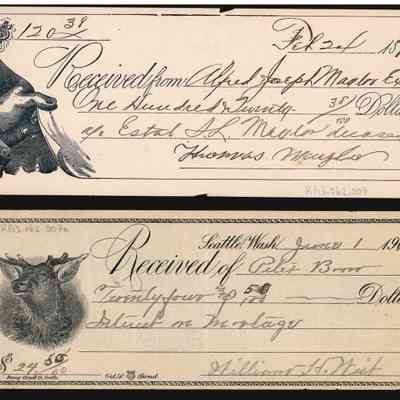 $120 38/ Feb 24 18
Received from Alfred Joseph Maylor Ex
One Hundred & Twenty 38/100 Dolla
a/c Estat Maylor
Thomas
RA3.062.007
RA3.062.007a
Seattle, Wash. June 1 190
Received of Peter
Twenty four & 50/100 Dolla
Intrest on Mortage
$24 50/00
William H. West